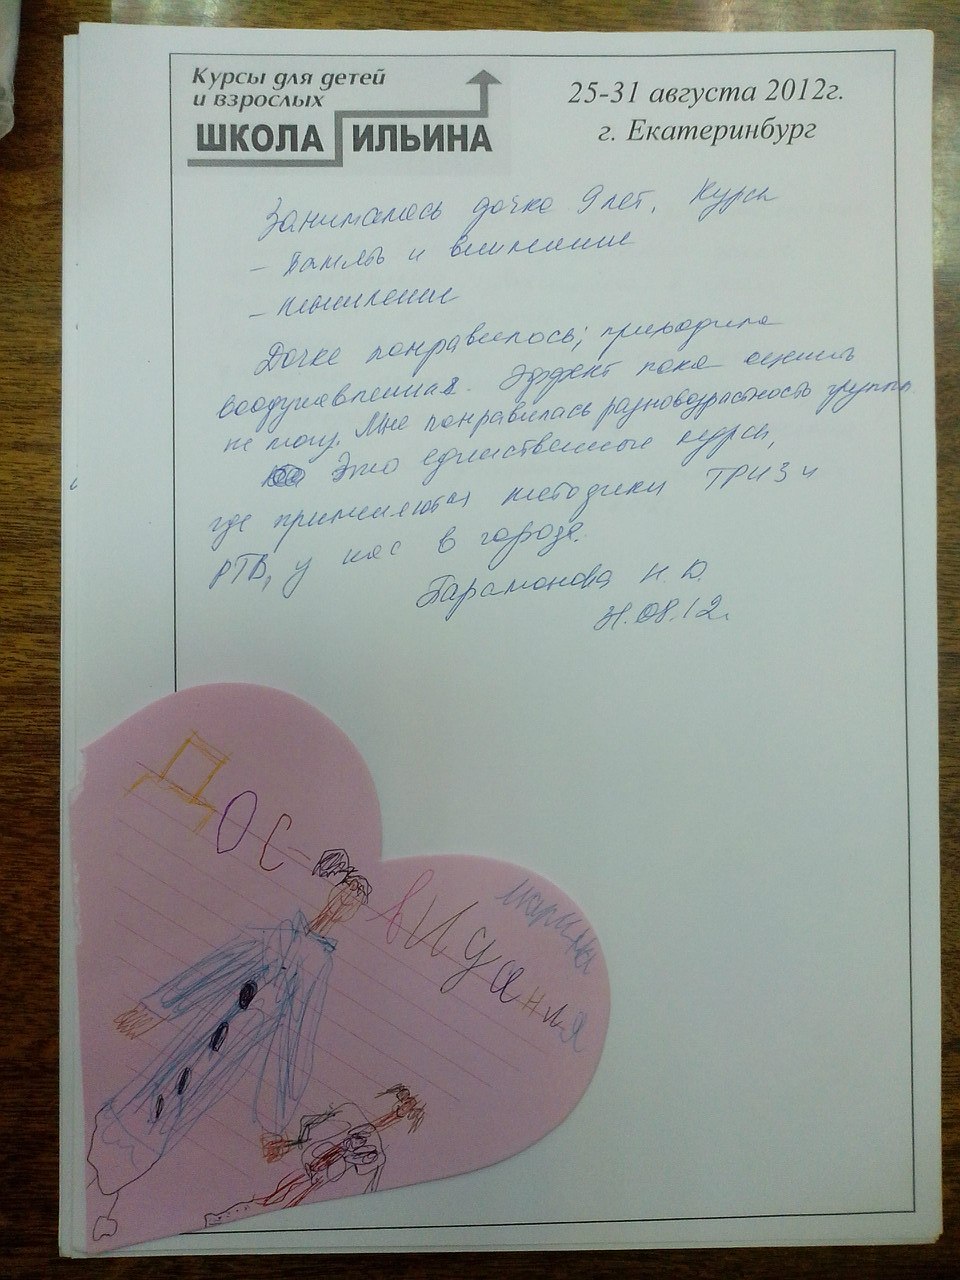 Курсы для детей
и взрослых
ШКОЛА ИЛЬИНА
25-31 августа 2012г.
г. Екатеринбург
Занималась дочка 9 лет. Курсы
- Память и внимание
- Мышление
Дочке понравилось; приходила
воодушевленная. Эффект пока оценить
не могу. Мне понравилась разновозрастность группы.
Это единственные курсы,
где применяются методики ТРИЗ и
РТВ, у нас в городе.
Парамонова Н. Ю.
31.08.12.
ДОС
вИдания